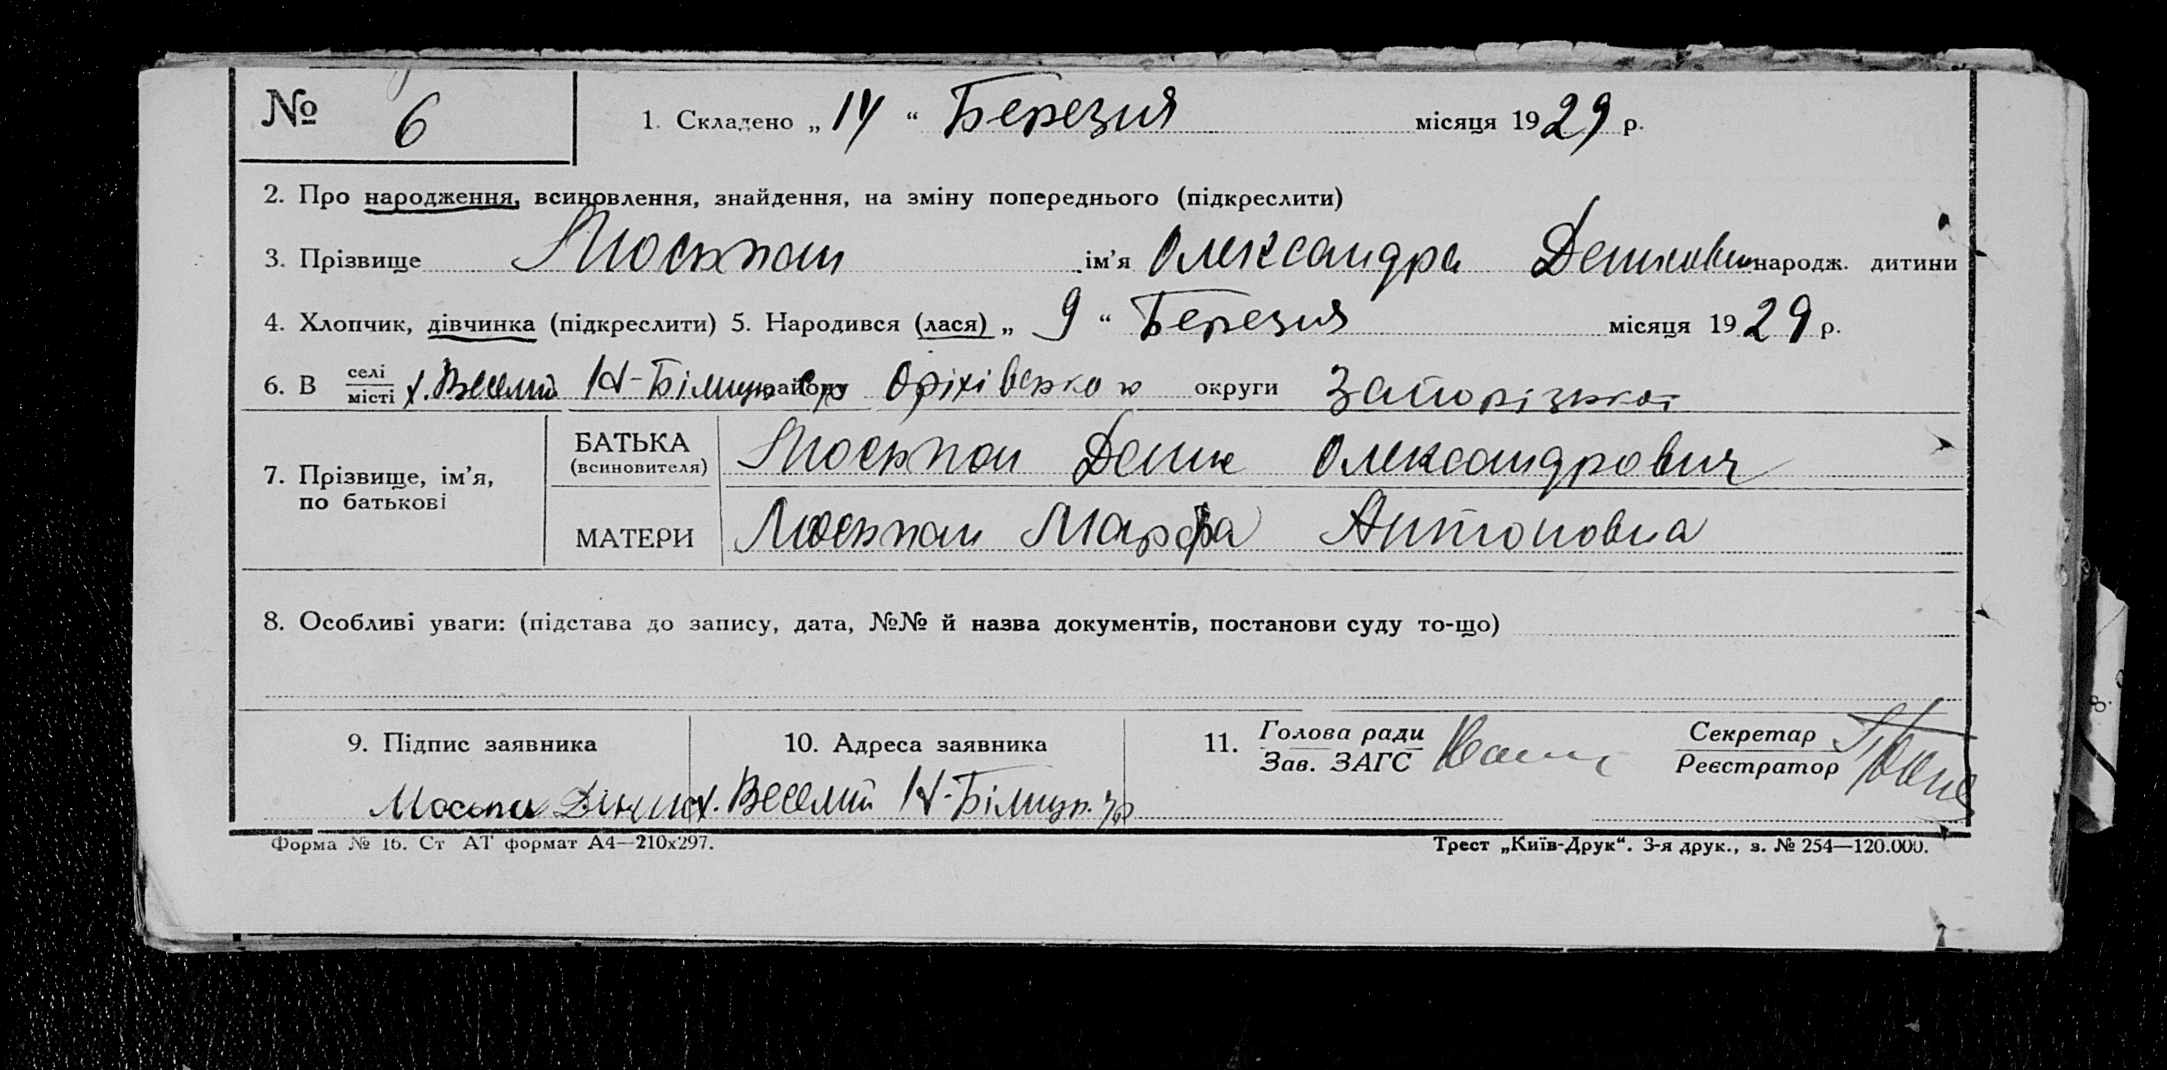 № 6 1. Складено „14“ Березня місяця 1929 р.
2. Про народження, всиновлення, знайдення, на зміну попереднього (підкреслити)
3. Прізвище Моськпан ім'я Олександра народж. дитини
4. Хлопчик, дівчинка (підкреслити) 5. Народився (лася) „9“ Березня місяця 1929 р.
6. В селі місті х. Веселий району Оріхівського округи Запорізької
7. Прізвище, ім'я, по батькові
БАТЬКА (всиновителя) Денис Олександрович
МАТЕРИ Марфа Антоновна
8. Особливі уваги: (підстава до запису, дата, №№ й назва документів, постанови суду то-що)
9. Підпис заявника 10. Адреса заявника 11. Голова ради Зав. ЗАГС Секретар Реєстратор
х. Веселий
Форма № 16. Ст АТ формат А4—210х297. Трест „Київ-Друк“. 3-я друк., з. № 254—120.000.